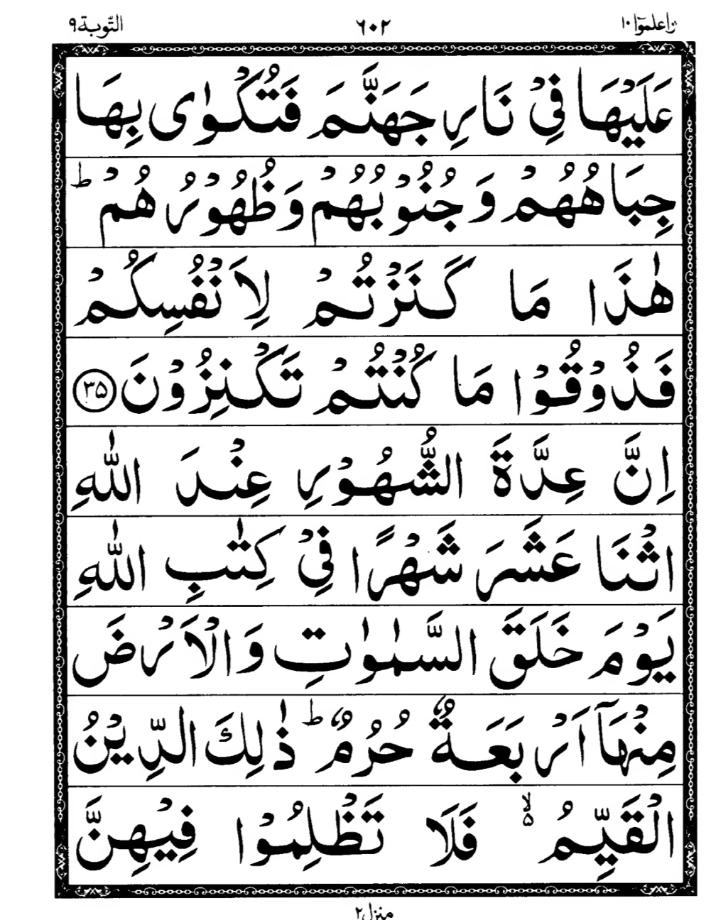 التوبة ٩ ٦٠٢ واعلموٓا ١٠
عَلَيْهَا فِيْ نَارِ جَهَنَّمَ فَتُكْوٰى بِهَا
جِبَاهُهُمْ وَجُنُوْبُهُمْ وَظُهُوْرُهُمْ ؕ
هٰذَا مَا كَنَزْتُمْ لِاَنْفُسِكُمْ
فَذُوْقُوْا مَا كُنْتُمْ تَكْنِزُوْنَ ﴿۳۵﴾
اِنَّ عِدَّةَ الشُّهُوْرِ عِنْدَ اللّٰهِ
اثْنَا عَشَرَ شَهْرًا فِيْ كِتٰبِ اللّٰهِ
يَوْمَ خَلَقَ السَّمٰوٰتِ وَالْاَرْضَ
مِنْهَاۤ اَرْبَعَةٌ حُرُمٌ ؕ ذٰلِكَ الدِّيْنُ
الْقَيِّمُ ۙ۵ فَلَا تَظْلِمُوْا فِيْهِنَّ
منزل ٢